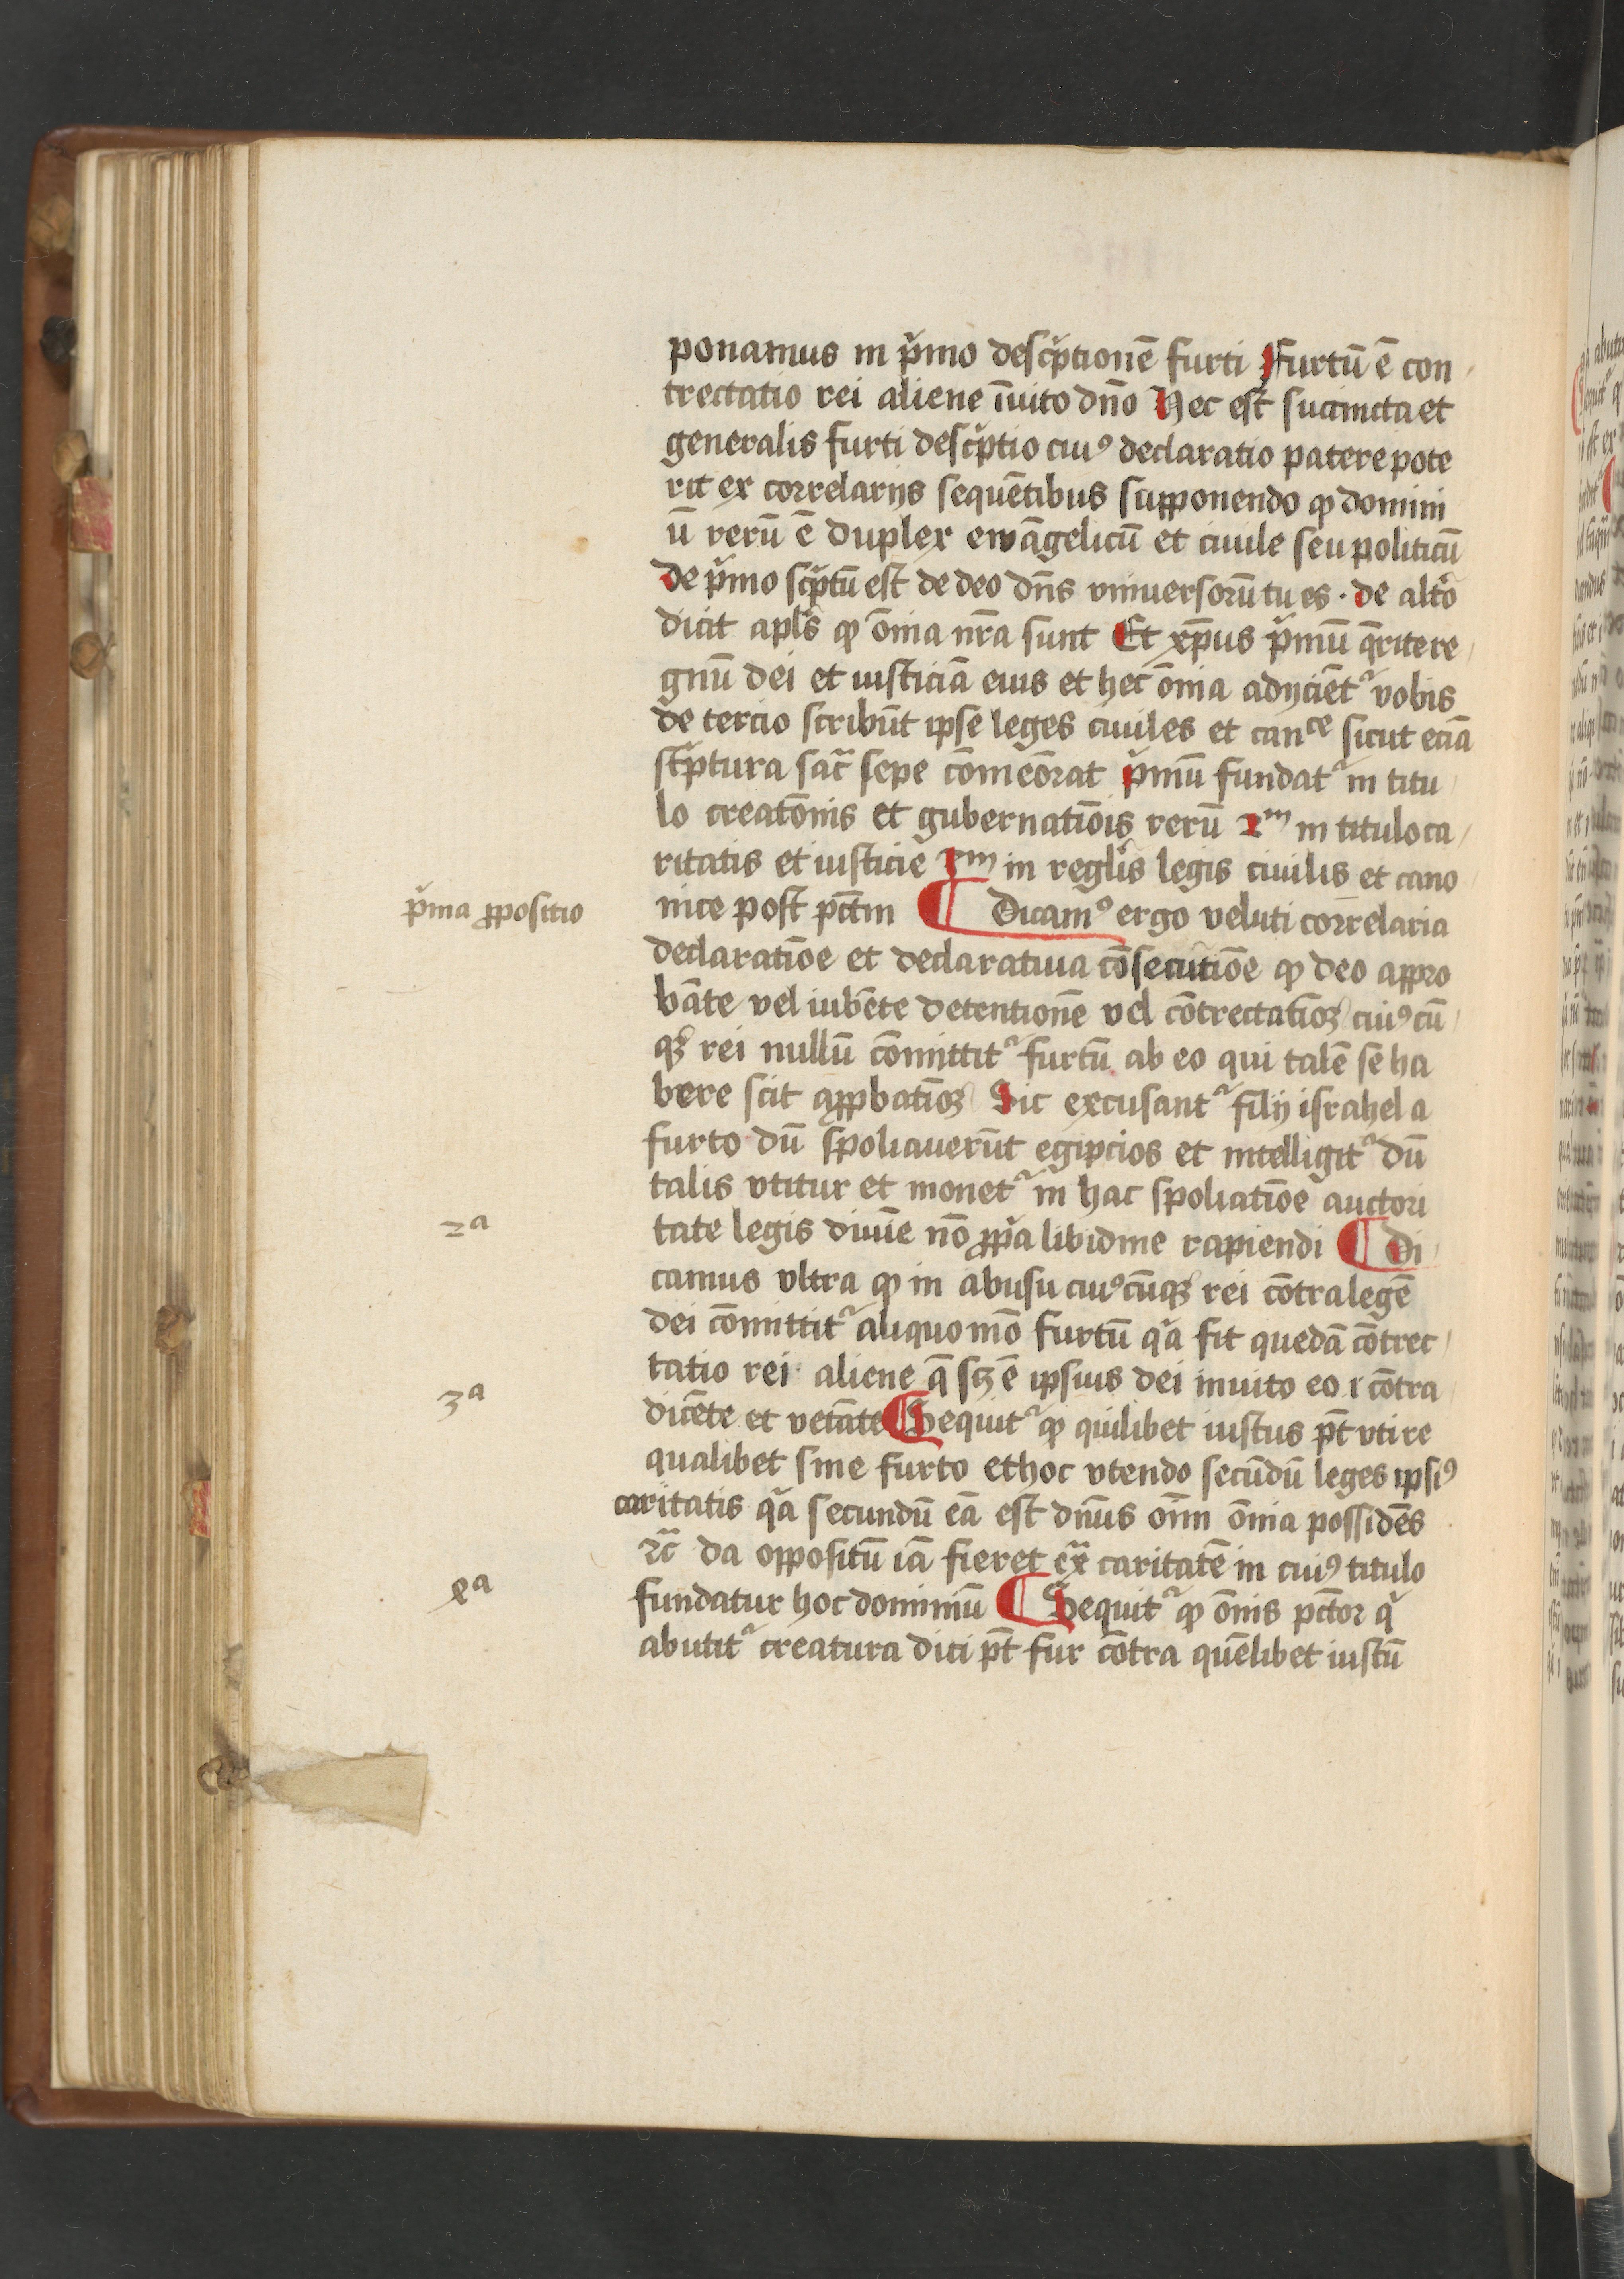 ponamus in pͥmo descͥptionē furti Furtū ē con
trectatio rei aliene īuito dn̄o Hec est succincta et
generalis furti descͥptio cuiꝰ declaratio patere pote
rit ex correlarijs sequētibus supponendo ꝙ domini
ū rerū ē duplex ewāgelicū et ciuile seu politicū
de pͥmo scͥptū est de deo dn̄s vniuersorū tu es · de altͦo
dicit apl̄s ꝙ om̄ia nr̄a sunt Et xp̄us pͥmū q̄rite re
gnū dei et iusticiā eius et hec om̄ia adijciētᷣ vobis
de tercio scribūt ipse leges ciuiles et canᶜᵉ sicut eciā
scͥptura sacᷓ sepe cōmeōrat pͥmū fundatᷣ in titu
lo creatōnis et gubernatiōis rerū 2ᵐ in titulo ca
ritatis et iusticie 3ᵐ in regl̄is legis ciuilis et cano
nice post pctm̄ ¶ Dicamꝰ ergo veluti correlaria
pͥma ꝓpositio
declaratiōe et declaratiua cōsecutiōe ꝙ deo appro
bāte vel iubēte detentionē vel cōtrectatiōꝫ cuiꝰcū
qꝫ rei nullū cōmittitᷣ furtū ab eo qui talē se ha
bere scit apꝓbatiōꝫ Sic excusantᷣ filij israhel a
furto dū spoliauerūt egipcios et intelligitᷣ dū
talis vtitur et monetᷣ in hac spoliatiōe auctori
tate legis diuīe nō ꝓpͥa libidine rapiendi ¶ Di
2ᵃ
camus vltra ꝙ in abusu cuiꝰcūqꝫ rei cōtra legē
dei cōmittitᷣ aliquo mō furtū qͥa fit quedā cōtrec
tatio rei aliene q̄ scꝫ ē ipsius dei inuito eo ⁊ cōtra
3ᵃ
dicēte et vetāte ¶ Sequitᷣ ꝙ quilibet iustus pt̄ vti re
qualibet sine furto et hoc vtendo secūdū leges ipsiꝰ
caritatis qͥa secundū eā est dn̄us oīm om̄ia possidēs
⁊cᷓ da oppositū iā fieret cͣx caritatē in cuiꝰ titulo
4ᵃ
fundatur hoc dominiū ¶ Sequitᷣ ꝙ om̄is pctōr qͥ
abutitᷣ creatura dici pt̄ fur cōtra quēlibet iustū